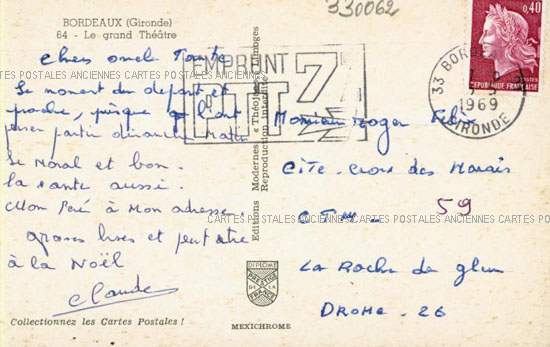 330062
BORDEAUX (Gironde)
64 - Le grand Théâtre
Cher oncle Tante
Le moment du départ et
proche, puisque qu l'ont
part dimanche Matin
Le Moral et bon.
la sante aussi.
Mon Peré à Mon adresse.
grosses bises et peut être
à la Noël
Claude
Collectionnez les Cartes Postales !
Editions Modernes « Théojac » Limoges
Reproduction interdite
DIPLOME
PRESTIGE
DE LA
FRANCE
MEXICHROME
EMPRUNT
7
0,40
REPUBLIQUE FRANÇAISE
33 BORDEAUX
1969
GIRONDE
Monsieur roger Felix
Cite. Croix des Marais
59
La Roche de glun
DROME - 26
CARTES POSTALES ANCIENNES CARTES POSTALES ANCIENNES CARTES POSTALES
CARTES POSTALES ANCIENNES CARTES POSTALES ANCIENNES CARTES POSTALES